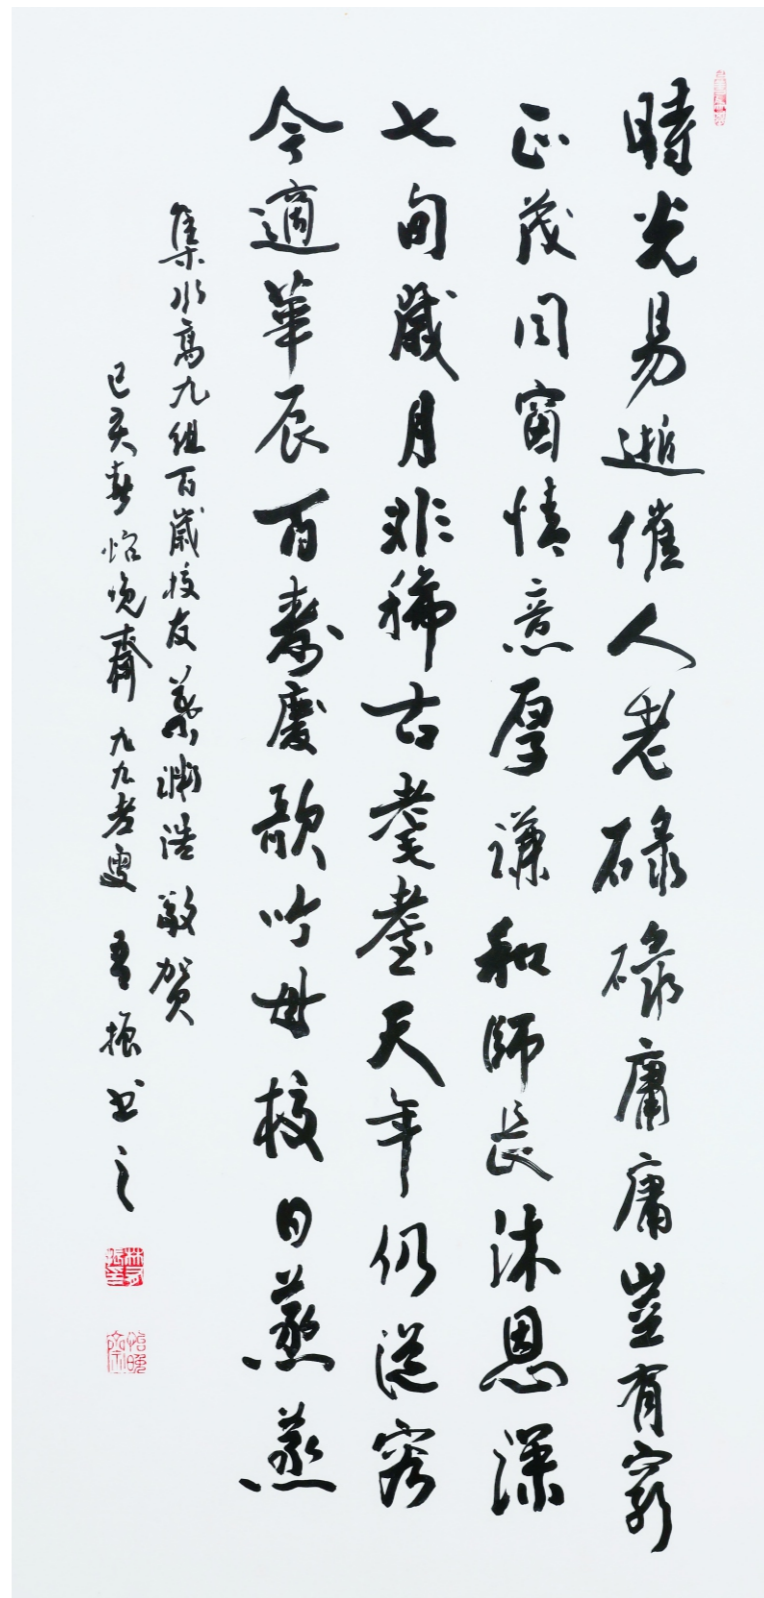 時光易逝催人老碌碌庸庸豈有窮
正茂同窗情意厚謙和師長沐恩深
七旬歲月非稀古耄耋天年仍從容
今適華辰百壽慶歌吟母校日蒸蒸
集水高九組百歲校友蔡淵浩敬賀
己亥春怡晚齋九九老叟振书之
怡晚齋